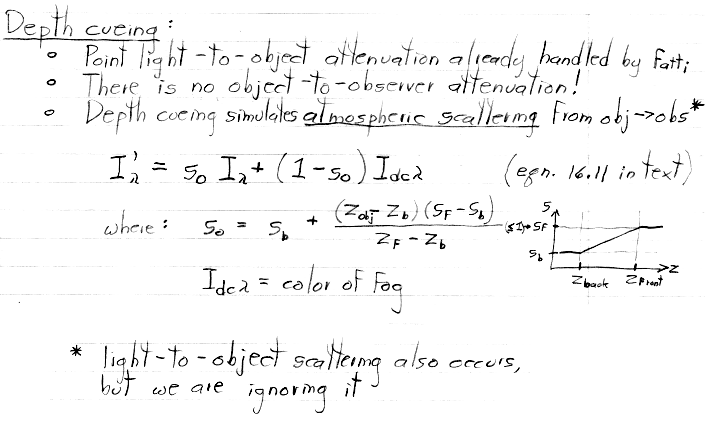 Depth cueing :
o Point light-to-object attenuation already handled by Fatti
o There is no object-to-observer attenuation!
o Depth cueing simulates atmospheric scattering from obj→obs*
I'λ = s₀ Iλ + (1-s₀) Idcλ (eqn. 16.11 in text)
where: s₀ = s_b + (Z_obj - Z_b)(S_F - S_b) / Z_F - Z_b
Idcλ = color of Fog
S
(≤1)→ SF
Sb
Z
Zback Zfront
* light-to-object scattering also occurs,
but we are ignoring it